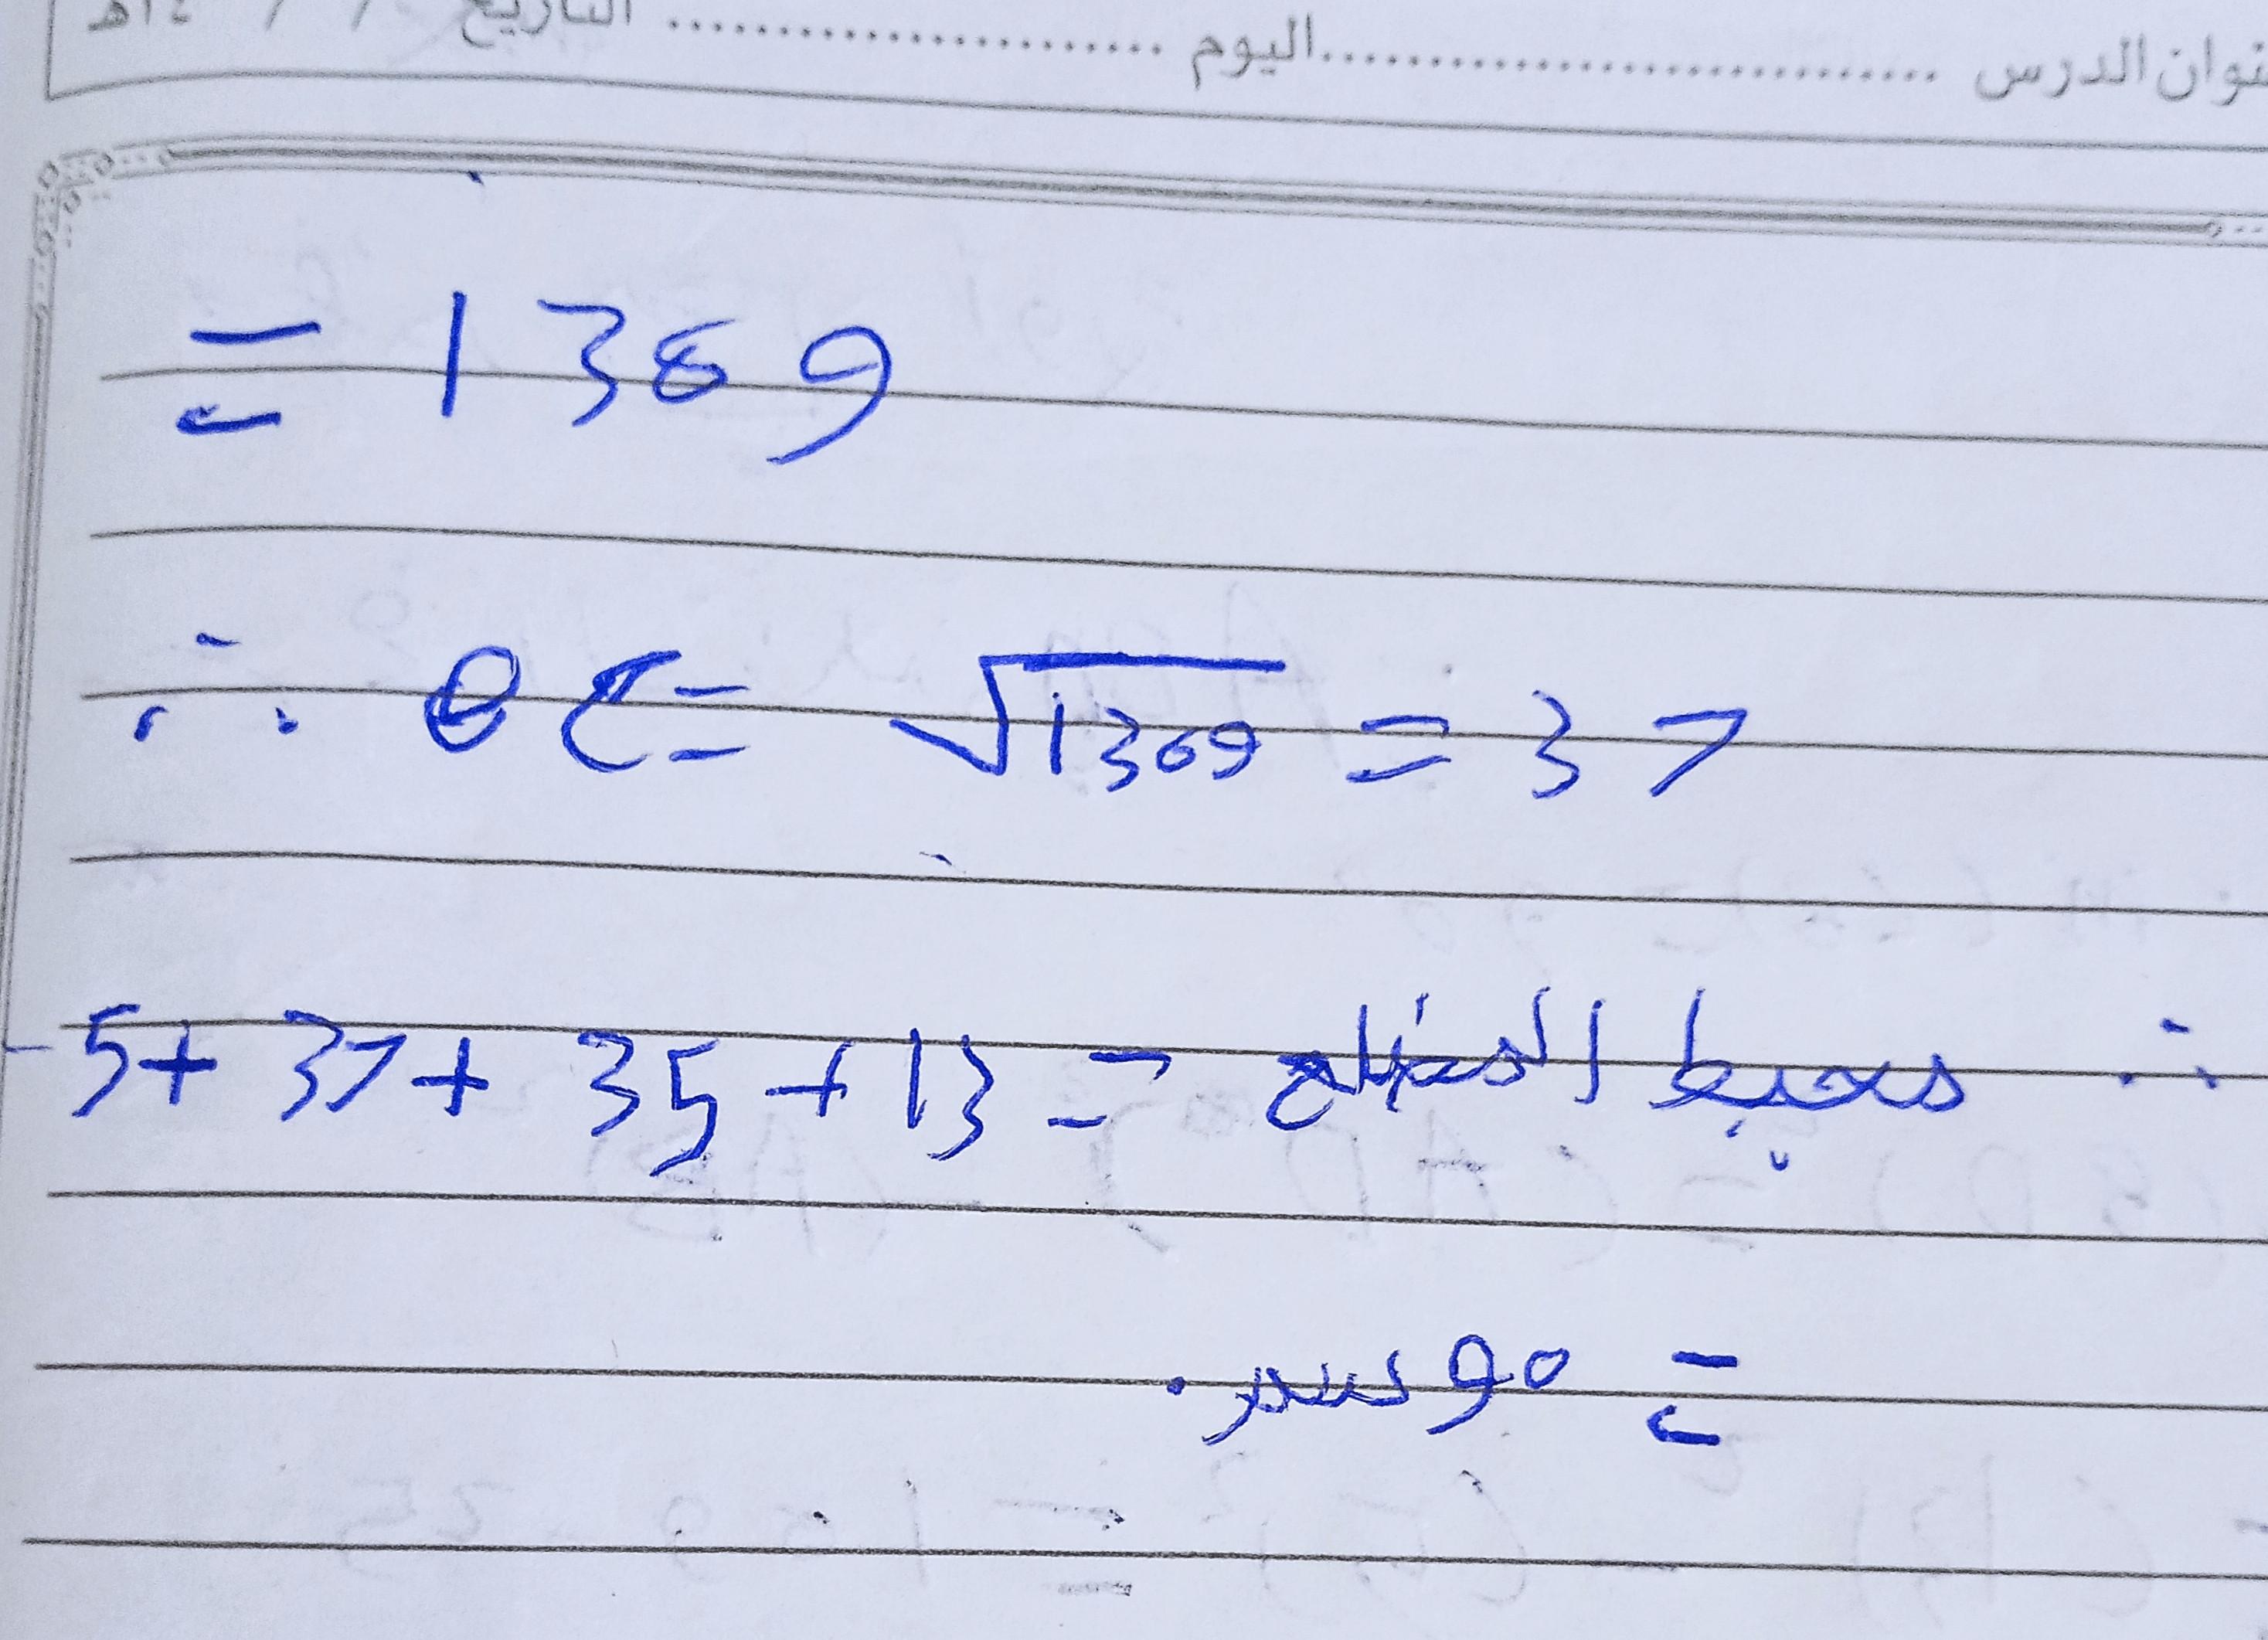 نوان الدرس ............................ اليوم ........................ التاريخ / / ١٤هـ
= 1369
∴ BC = √1369 = 37
∴ محيط المضلع = 5+ 37+ 35 +13
= 90 سم.